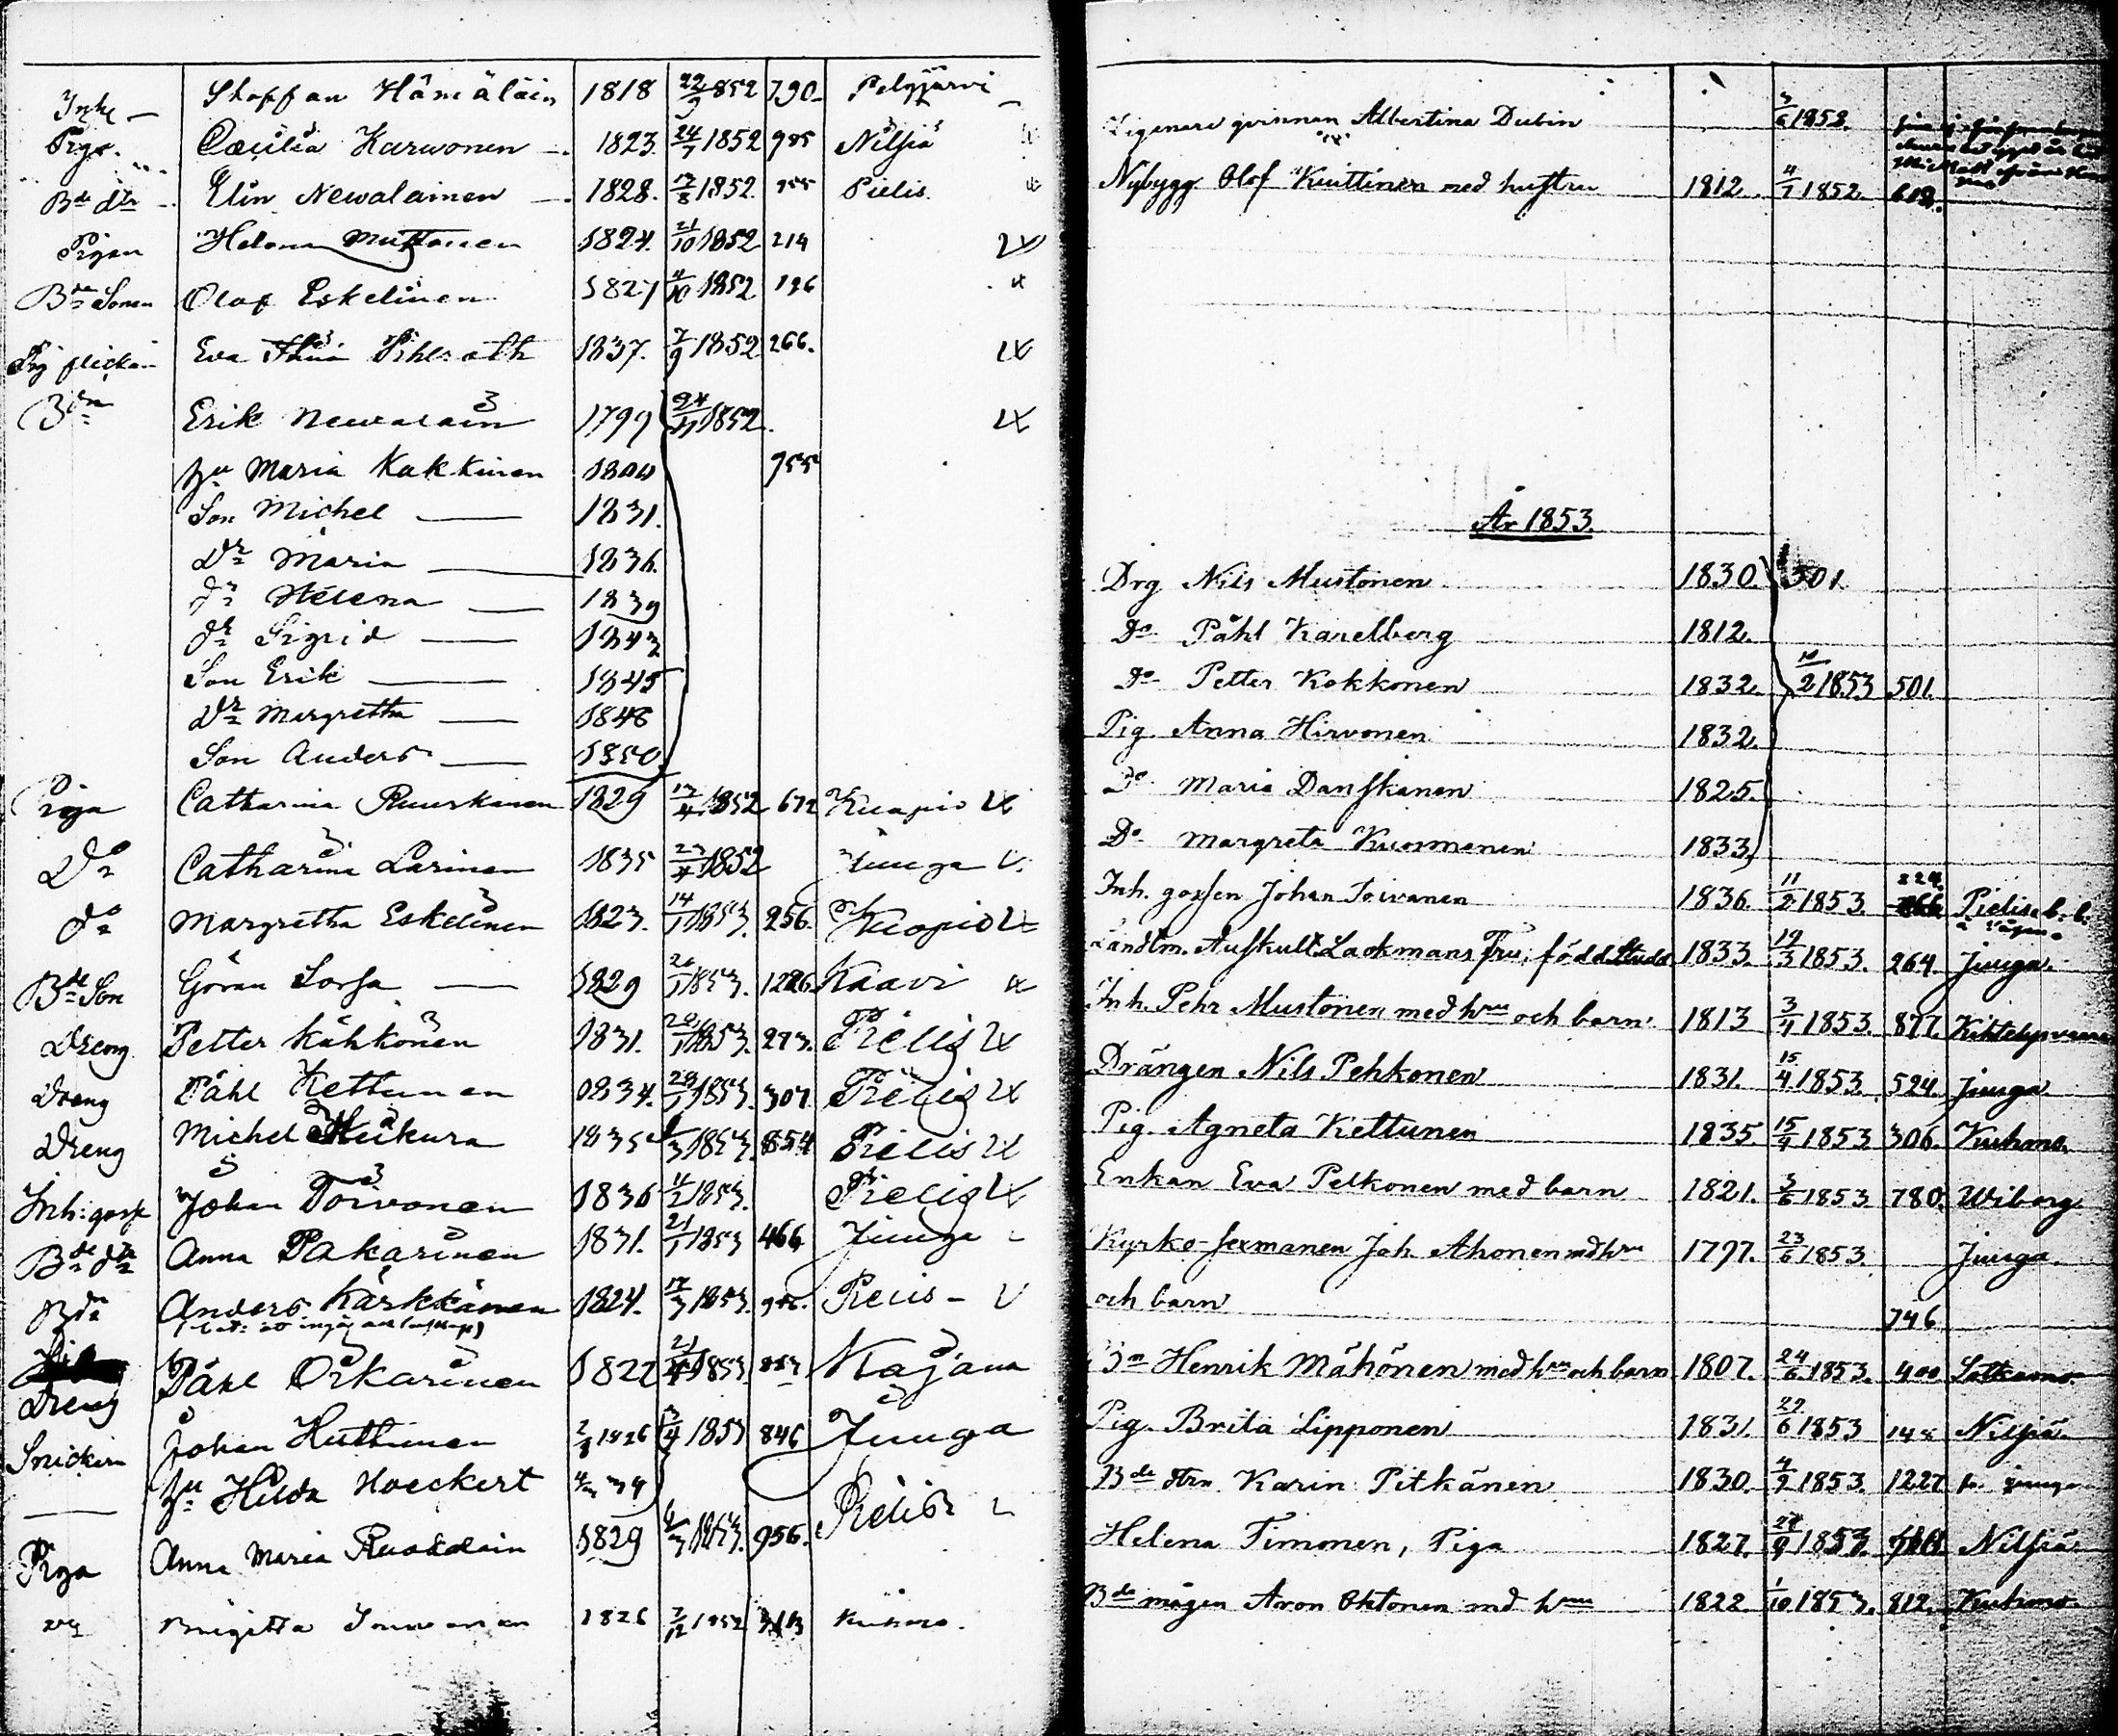 Inhe Staffan Hämäläin 1818 22/9 852 790 Pelgjärvi
Piga Cæcilia Karwonen 1823. 24/7 1852 985 Nilsiä
Bde dtr Elin Newalainen 1828. 17/8 1852. 955 Pielis
Pigan Helena Mustonen 1824. 21/10 1852 214
Bde Sonen Olof Eskelinen 1827 4/10 1852 196
Pig flickan Eva 1837. 7/9 1852 266.
Bdn Erik Newalain 1799 24/11 1852.
Hu Maria Kakkinen 1800 955
Son Michel 1831.
Dr Maria 1836.
dr Helena 1839
dr Sigrid 1843
Son Erik 1845
Dr Margretha 1848
Son Anders 1850
Piga Catharina Ruuskanen 1829 17/4 1852 672 Kuopio
Do Catharina Larinen 1835 1852 Juuga
do Margretha Eskelinen 1823. 14/1 1853. 256. Kuopio
Bde Son Göran Sorsa 1829 26/1 1853. 1286 Kaavi
Dreng Petter Kähkönen 1831. 28/1 1853. 273. Pielis
Dreng Påhl Kettunen 1834. 28/1 1853. 307 Pielis
Dreng Michel Heikura 1835 1853. 854 Pielis
Inh: goss Johan Toivonen 1836 11/2 1853. Pielis
Bde dtr Anna Pakarinen 1831. 21/1 1853 466 Juuga
Bdn Anders Kärkkäinen 1824. 17/3 1853. 956. Pielis
Dreng Påhl Oikarinen 1822 1853. 857 Kajana
Snickeri Johan Huttunen 2/8 1826 3/4 1853 846 Juuga
Hu Hilda Hoeckert 34
Piga Anna Maria 1829 1853. 956. Pielis
Brigitta 1826 7/12 1852 Kuhmo.
Albertina Dubin 3/6 1852.
Nybygg Olof Kuittinen med hustru 1812. 4/7 1852. 612.
År 1853.
Drg Nils Mustonen 1830. 501.
Do Påhl Karelberg 1812.
Do Petter Kokkonen 1832. 10/2 1853 501.
Pig. Anna Hirvonen 1832.
Do Maria Danskanen 1825.
Do Margreta Kuosmanen 1833.
Inh. gossen Johan Toivanen 1836. 11/2 1853. 224. Pielis
Landtm. Auskult. Lackmans Fru, född 1833. 19/3 1853. 264. Juuga.
Inh. Pehr Mustonen med hru och barn 1813 3/4 1853. 877. Kihtelysvaara
Drängen Nils Pehkonen 1831. 15/4 1853. 524. Juuga
Pig. Agneta Kettunen 1835. 15/4 1853 306. Kuhmo.
Enkan Eva Pelkonen med barn 1821. 3/6 1853 780. Wiborg
Kyrko-sexmanen Joh Ahonen md hru 1797. 23/6 1853. Juuga.
och barn 746
Bn Henrik Mähönen med hru och barn 1807. 24/6 1853. 400 Sotkamo
Pig. Brita Lipponen 1831. 29/6 1853 148 Nilsiä
Bde dtrn Karin Pitkänen 1830. 4/9 1853. 1227 fr. Juuga
Helena Timonen, Piga 1827. 27/9 1853. Nilsiä
Bde mågen Aron Oktonen md hru 1822. 1/10 1853. 812. Kuhmo